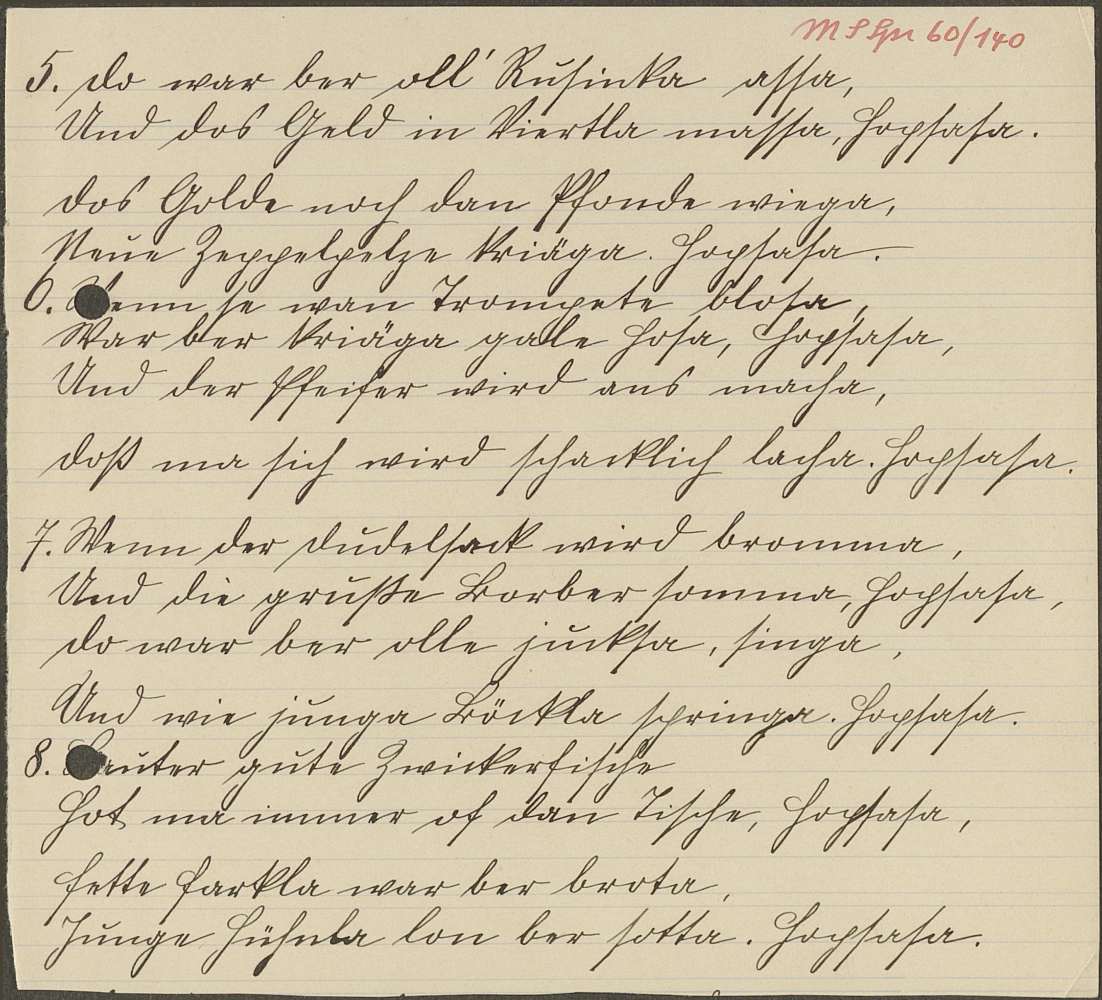 M S Gr 60/140
5. Do war ber oll' Rusinka assa,
Und dos Geld in Viertla massa, Hopsasa.
Dos Golde noch dan Pfonde wiega,
Neue Zeppelpelze kriäga. Hopsasa.
6. Wenn se wan Trompete blosa,
War ber kriäga gale Hosa, Hopsasa,
Und der Pfeifer wird ans macha,
Doß ma sich wird schacklich lacha. Hopsasa.
7. Wenn der Dudelsack wird bromma,
Und die grußte Borber somma, Hopsasa,
Do war ber olle jucksa, singa,
Und wie junga Böckla springa. Hopsasa.
8. Lauter gute Zwickerfische
Hot ma immer of dan Tische, Hopsasa,
Fette Farkla war ber brota,
Junge Hühnla lon ber sotta. Hopsasa.